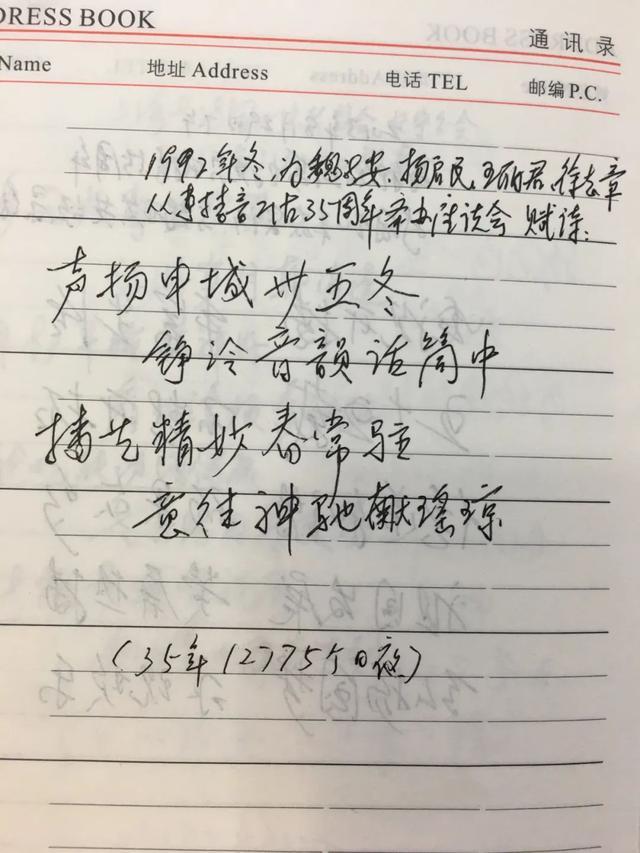 DRESS BOOK
通讯录
Name 地址 Address 电话 TEL 邮编 P.C.
1992年冬,为魏兴安、杨启民、王丽君、徐志章
从事播音工作35周年举办座谈会 赋诗:
声扬申城卅五冬
铮泠音韻话筒中
播艺精妙春常驻
意往神驰献瑤琼
(35年12775个日夜)